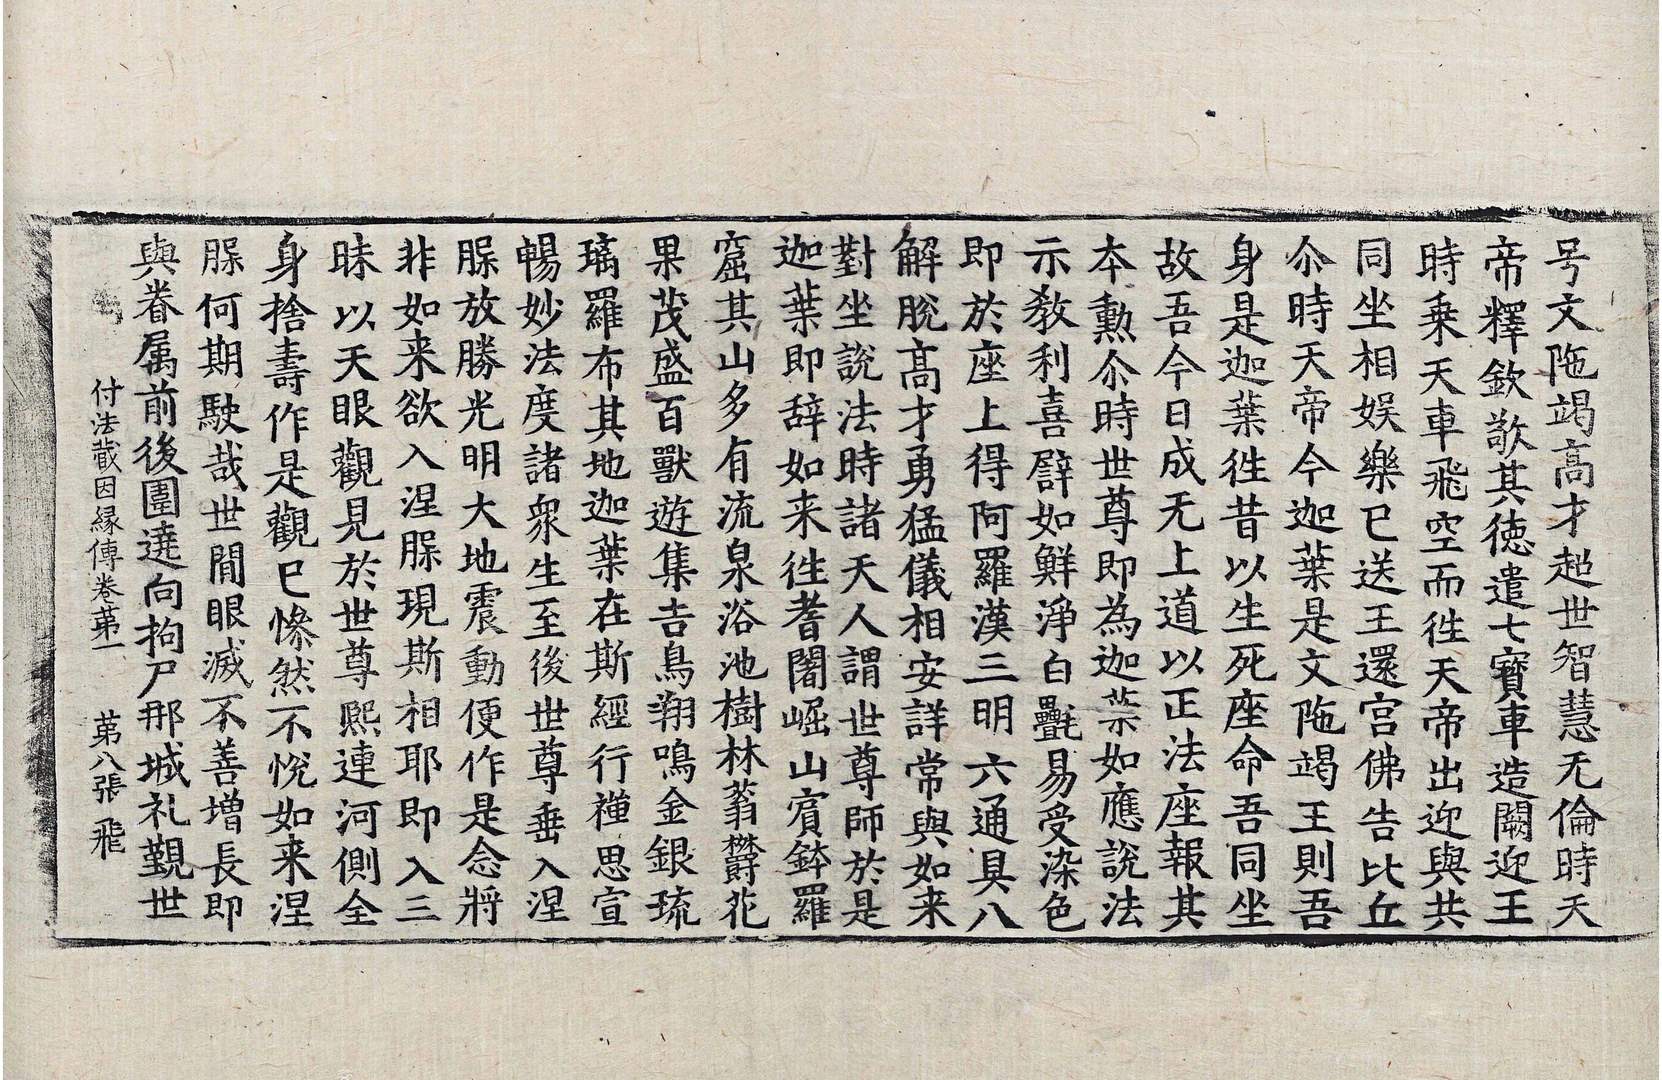 号文陁竭高才超世智慧无倫時天
帝釋欽敬其徳遣七寶車造闕迎王
時乗天車飛空而徃天帝出迎與共
同坐相娯樂已送王還宮佛告比丘
尒時天帝今迦葉是文陁竭王則吾
身是迦葉徃昔以生死座命吾同坐
故吾今日成无上道以正法座報其
本勳尒時世尊即為迦葉如應說法
示教利喜譬如鮮淨白㲲易受染色
即於座上得阿羅漢三明六通具八
解脫高才勇猛儀相安詳常與如来
對坐說法時諸天人謂世尊師於是
迦葉即辞如来徃耆闍崛山賔鉢羅
窟其山多有流泉浴池樹林蓊欝花
果茂盛百獸遊集吉鳥翔鳴金銀琉
璃羅布其地迦葉在斯經行禪思宣
暢妙法度諸衆生至後世尊垂入涅
䐗放勝光明大地震動便作是念將
非如来欲入涅䐗現斯相耶即入三
昧以天眼觀見於世尊熙連河側全
身捨壽作是觀已慘然不悅如来涅
䐗何期駛哉世間眼滅不善增長即
與眷属前後圍遶向拘尸那城礼覲世
付法藏因緣傳卷苐一　苐八張　飛